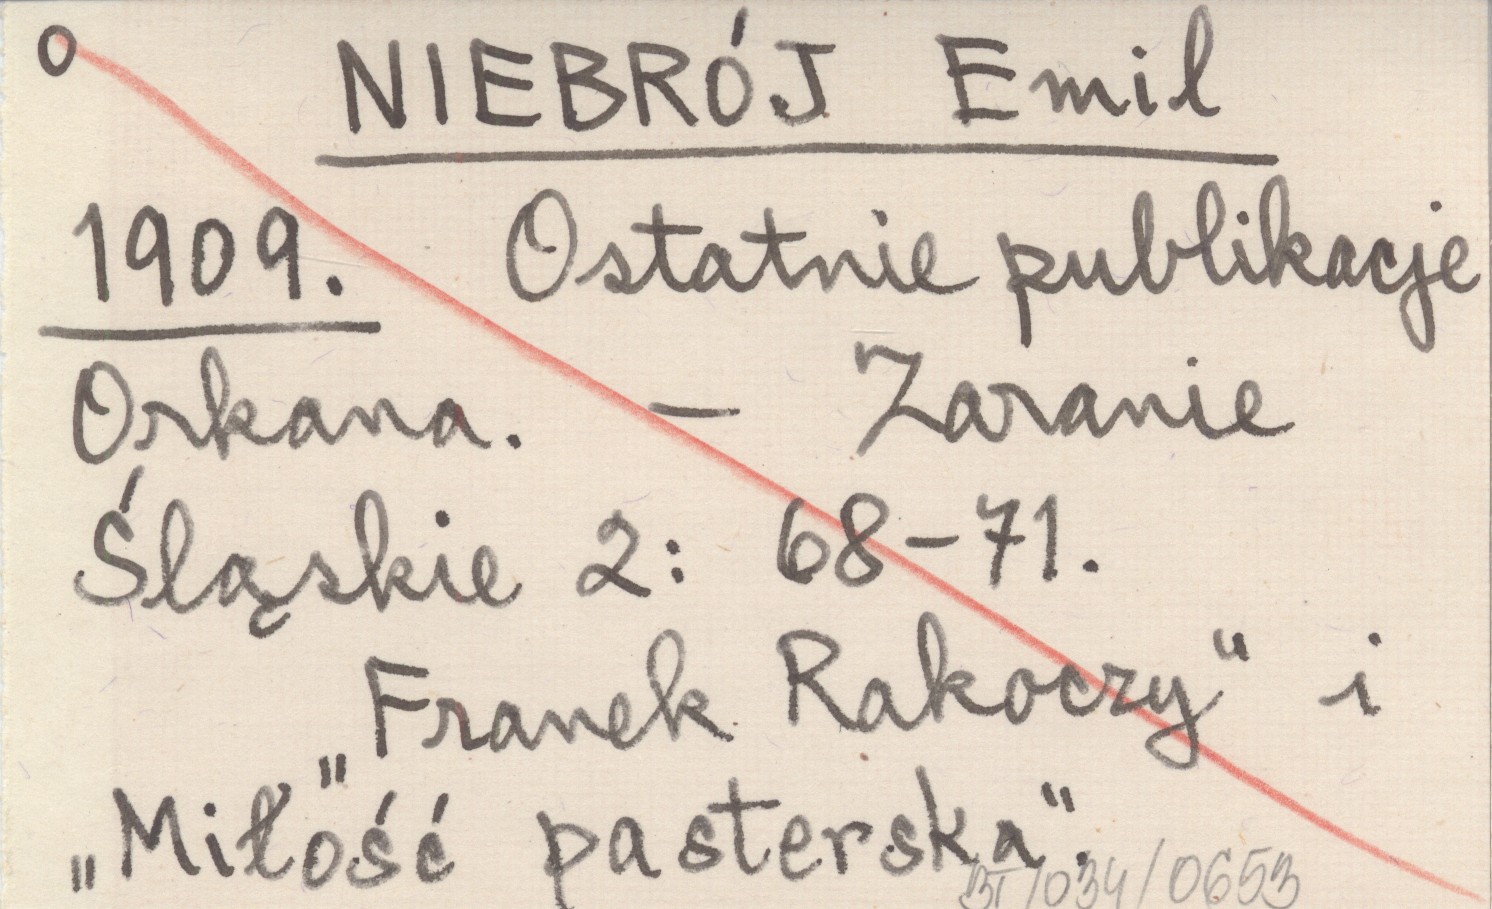 o NIEBRÓJ Emil
1909. Ostatnie publikacje
Orkana. – Zaranie
Śląskie 2: 68–71.
„Franek Rakoczy" i
„Miłość pasterska".
/034/0653